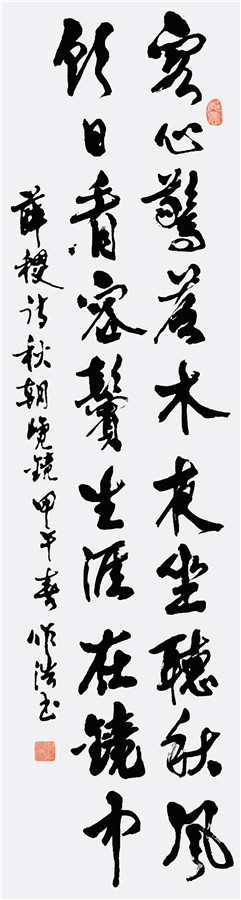 客心驚落木夜坐聽秋風
朝日看容鬢生涯在鏡中
薛稷詩秋朝覽鏡甲午春作浩書